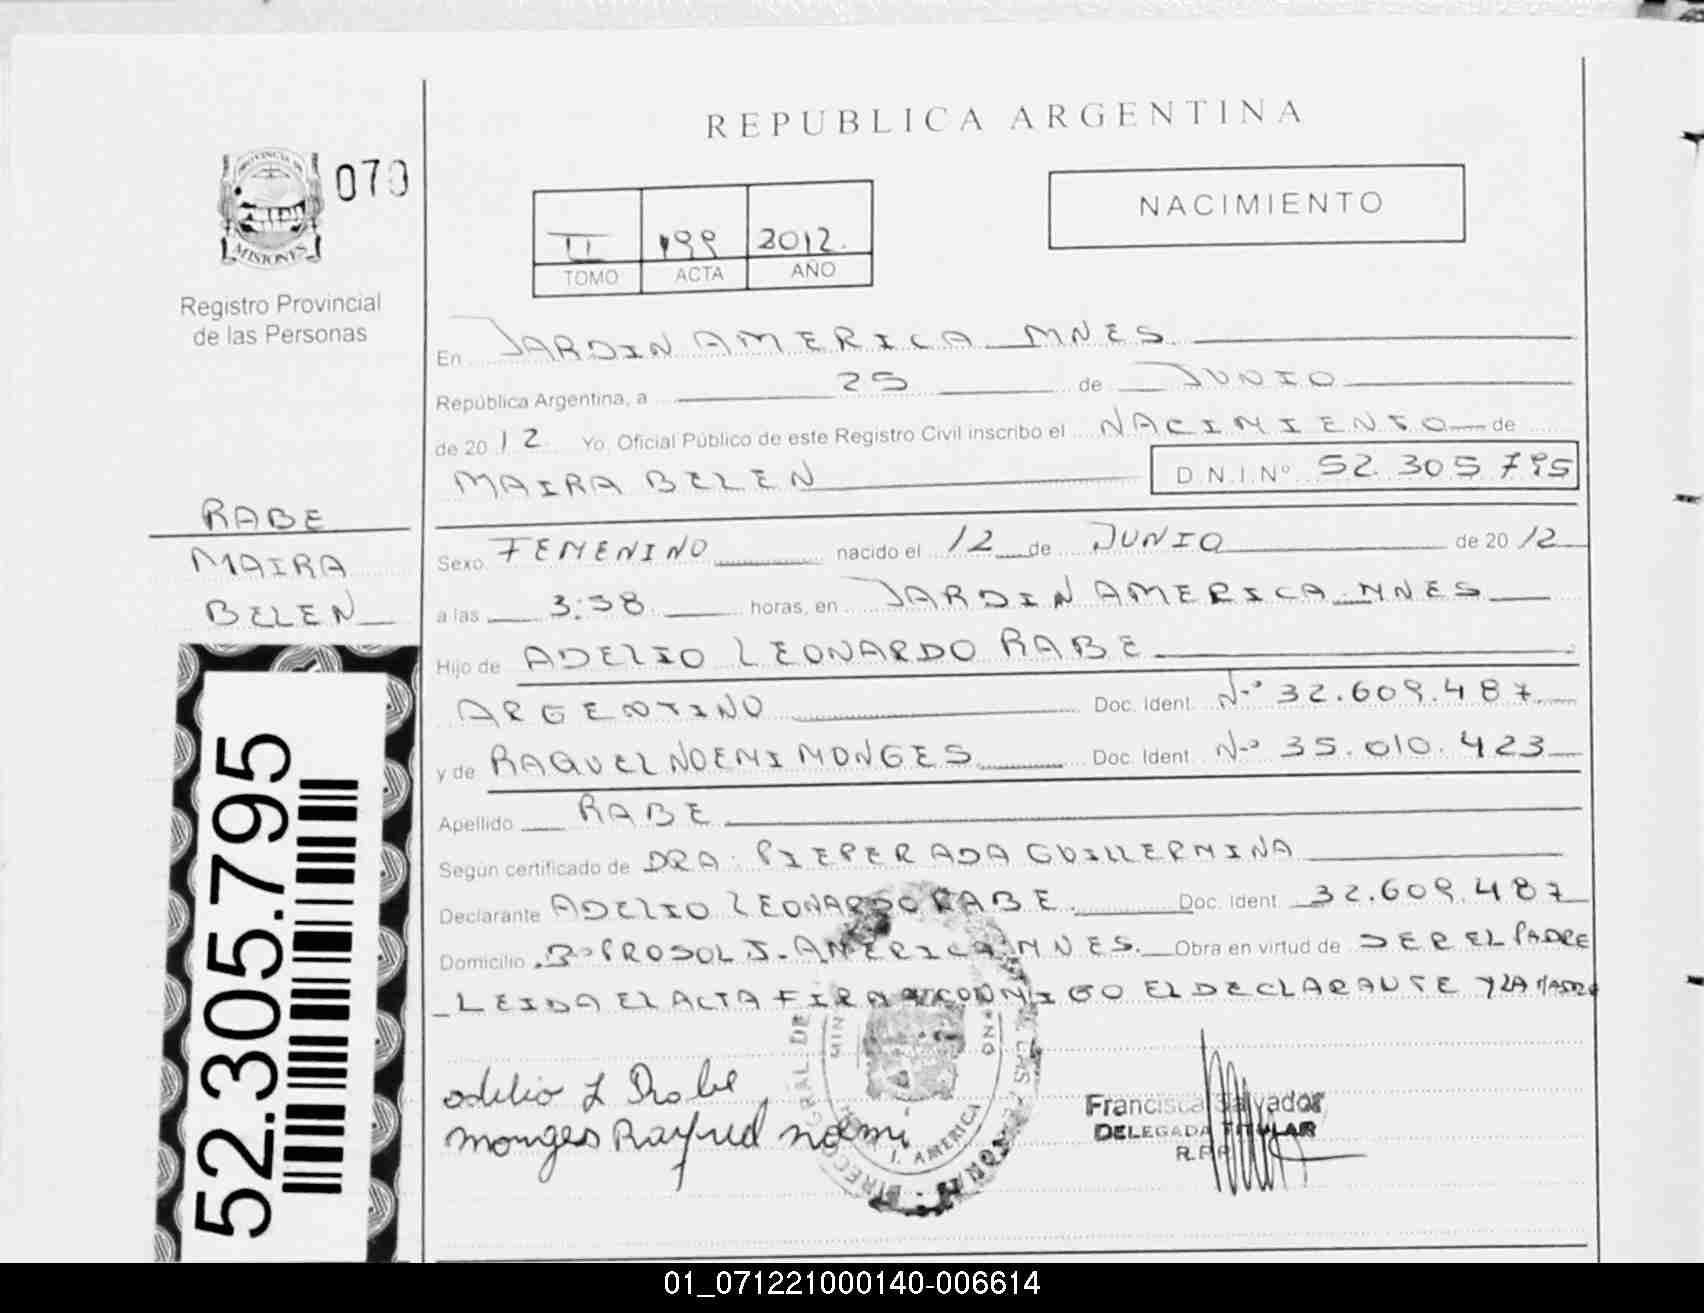 REPUBLICA ARGENTINA
PROVINCIA DE
MISIONES
070
Registro Provincial
de las Personas
II 199 2012.
TOMO ACTA AÑO
NACIMIENTO
En JARDIN AMERICA MNES
República Argentina, a 25 de JUNIO
de 2012. Yo, Oficial Público de este Registro Civil inscribo el NACIMIENTO de
MAIRA BELEN D.N.I.Nº 52.305795
RABE
MAIRA
BELEN
Sexo FEMENINO nacido el 12 de JUNIO de 2012
a las 3:38 horas, en JARDIN AMERICA MNES
Hijo de ADELIO LEONARDO RABE
ARGENTINO Doc. Ident. Nº 32.609.487
y de RAQUEL NOEMI MONGES Doc. Ident. Nº 35.010.423
Apellido RABE
Según certificado de DRA. PIEPER ADA GUILLERMINA
Declarante ADELIO LEONARDO RABE Doc. Ident. 32.609.487
Domicilio Bº PROSOL J. AMERICA MNES. Obra en virtud de SER EL PADRE
LEIDA EL ACTA FIRMA CONMIGO EL DECLARANTE Y LA MADRE
Adelio L Rabe
Monges Raquel Noemi
J. AMERICA
Francisca Salvador
DELEGADA TITULAR
R.P.P.
52.305.795
01_071221000140-006614